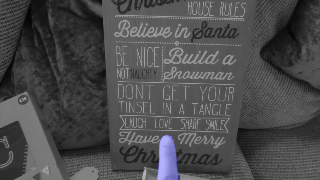 Christmas
HOUSE RULES
Believe in Santa
BE NICE
NOT NAUGHTY
Build a
Snowman
DONT GET YOUR
TINSEL IN A TANGLE
LAUGH LOVE SHARE SMILE
Have a Merry
Christmas